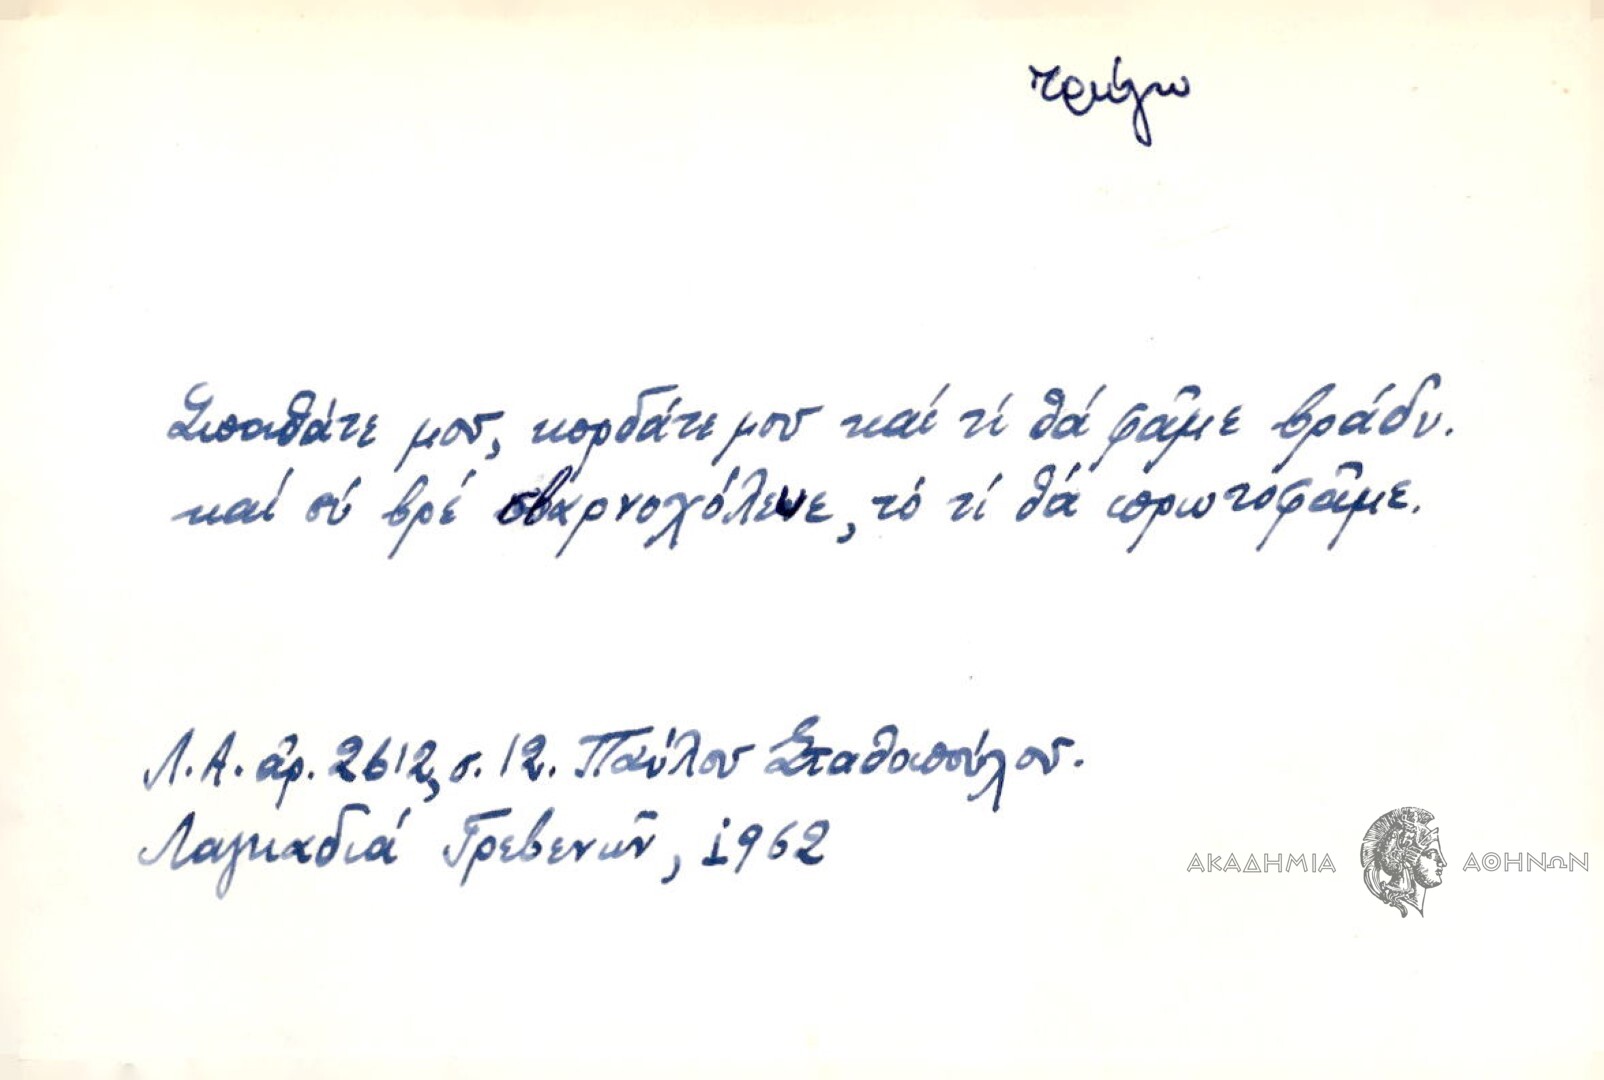 τρώγω
Σπαθάτε μου, κορδάτε μου καί τί θά φᾶμε βράδυ.
καί σύ βρέ σβαρνοχόλευε, τό τί θά πρωτοφᾶμε.
Λ.Α. ἀρ. 2612, σ. 12. Παύλου Σταθοπούλου.
Λαγκαδιά Γρεβενῶν, 1962
ΑΚΑΔΗΜΙΑ ΑΘΗΝΩΝ